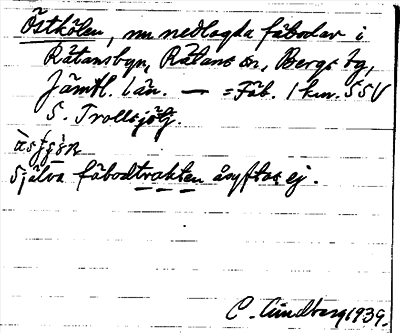 Östkölen, nu nedlagda fäbodar i
Rätansbyn, Rätans sn., Bergs tg,
Jämtl. län. — = Fäb. 1 km. SSV
S. Trollsjöb.
Själva fäbodtrakten åsyftas ej.
C. Lindberg 1939.